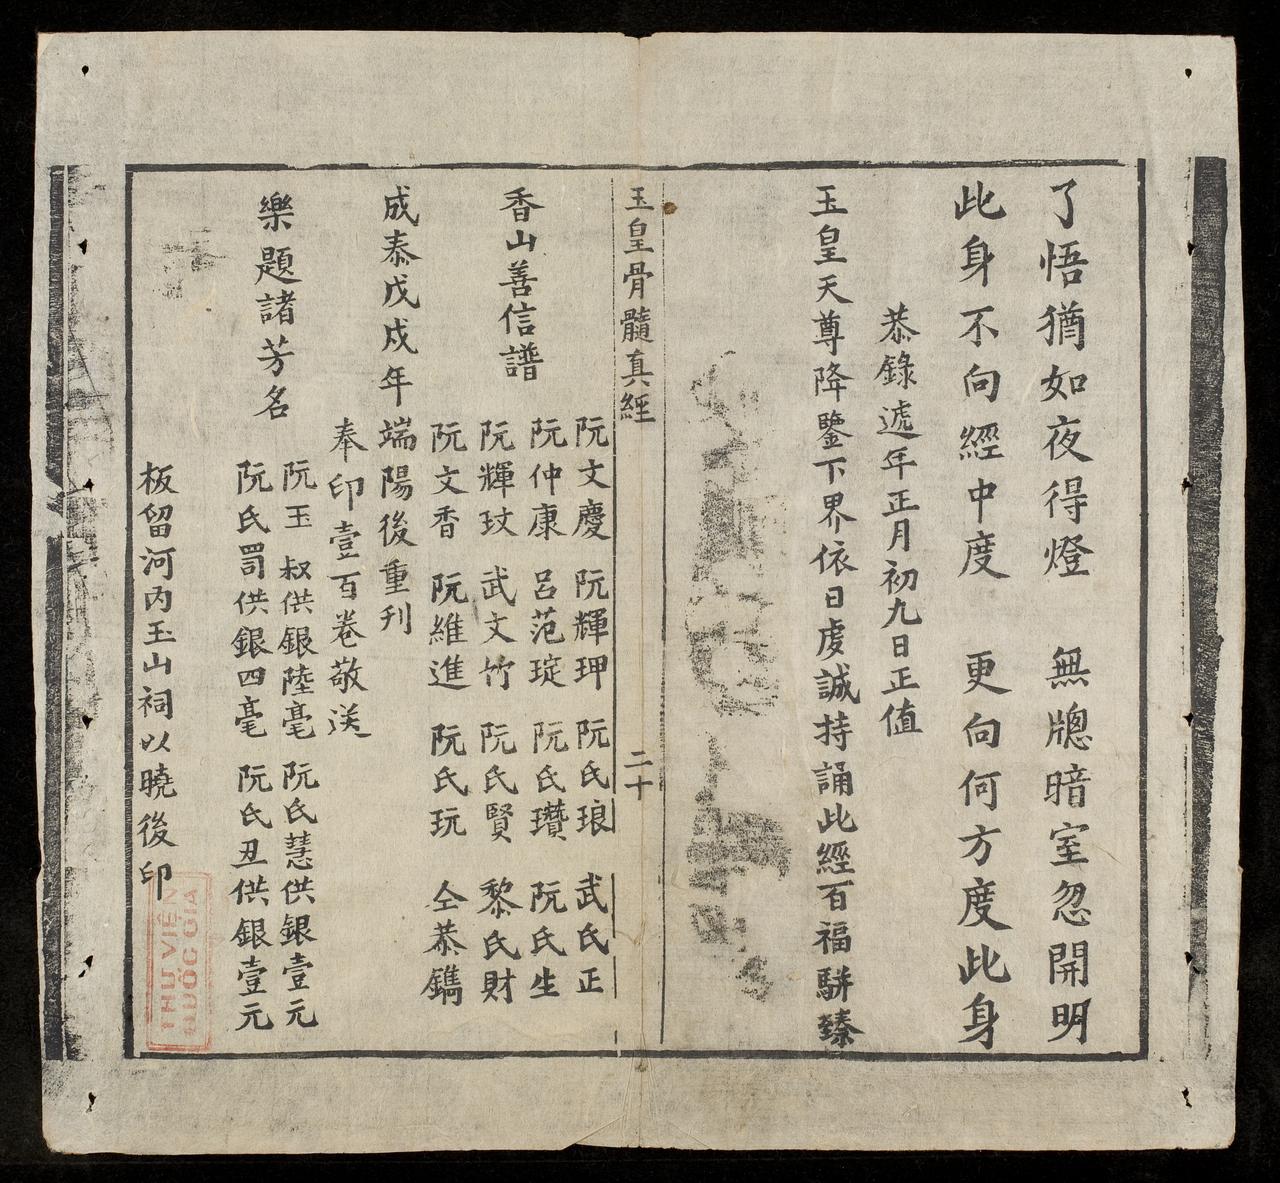 了悟猶如夜得燈　無牕暗室忽開明
此身不向經中度　更向何方度此身
恭錄遞年正月初九日正值
玉皇天尊降鑒下界依日虔誠持誦此經百福駢臻
玉皇骨髓真經　二十
香山善信譜
阮文慶　阮輝玾　阮氏琅　武氏正
阮仲康　呂范琔　阮氏瓚　阮氏生
阮輝玟　武文竹　阮氏賢　黎氏財
阮文香　阮維進　阮氏玩　仝恭鐫
成泰戊戌年端陽後重刊
奉印壹百卷敬送
樂題諸芳名
阮玉叔供銀陸毫　阮氏慧供銀壹元
阮氏蜀供銀四毫　阮氏丑供銀壹元
板留河內玉山祠以曉後印
THƯ VIỆN
QUỐC GIA